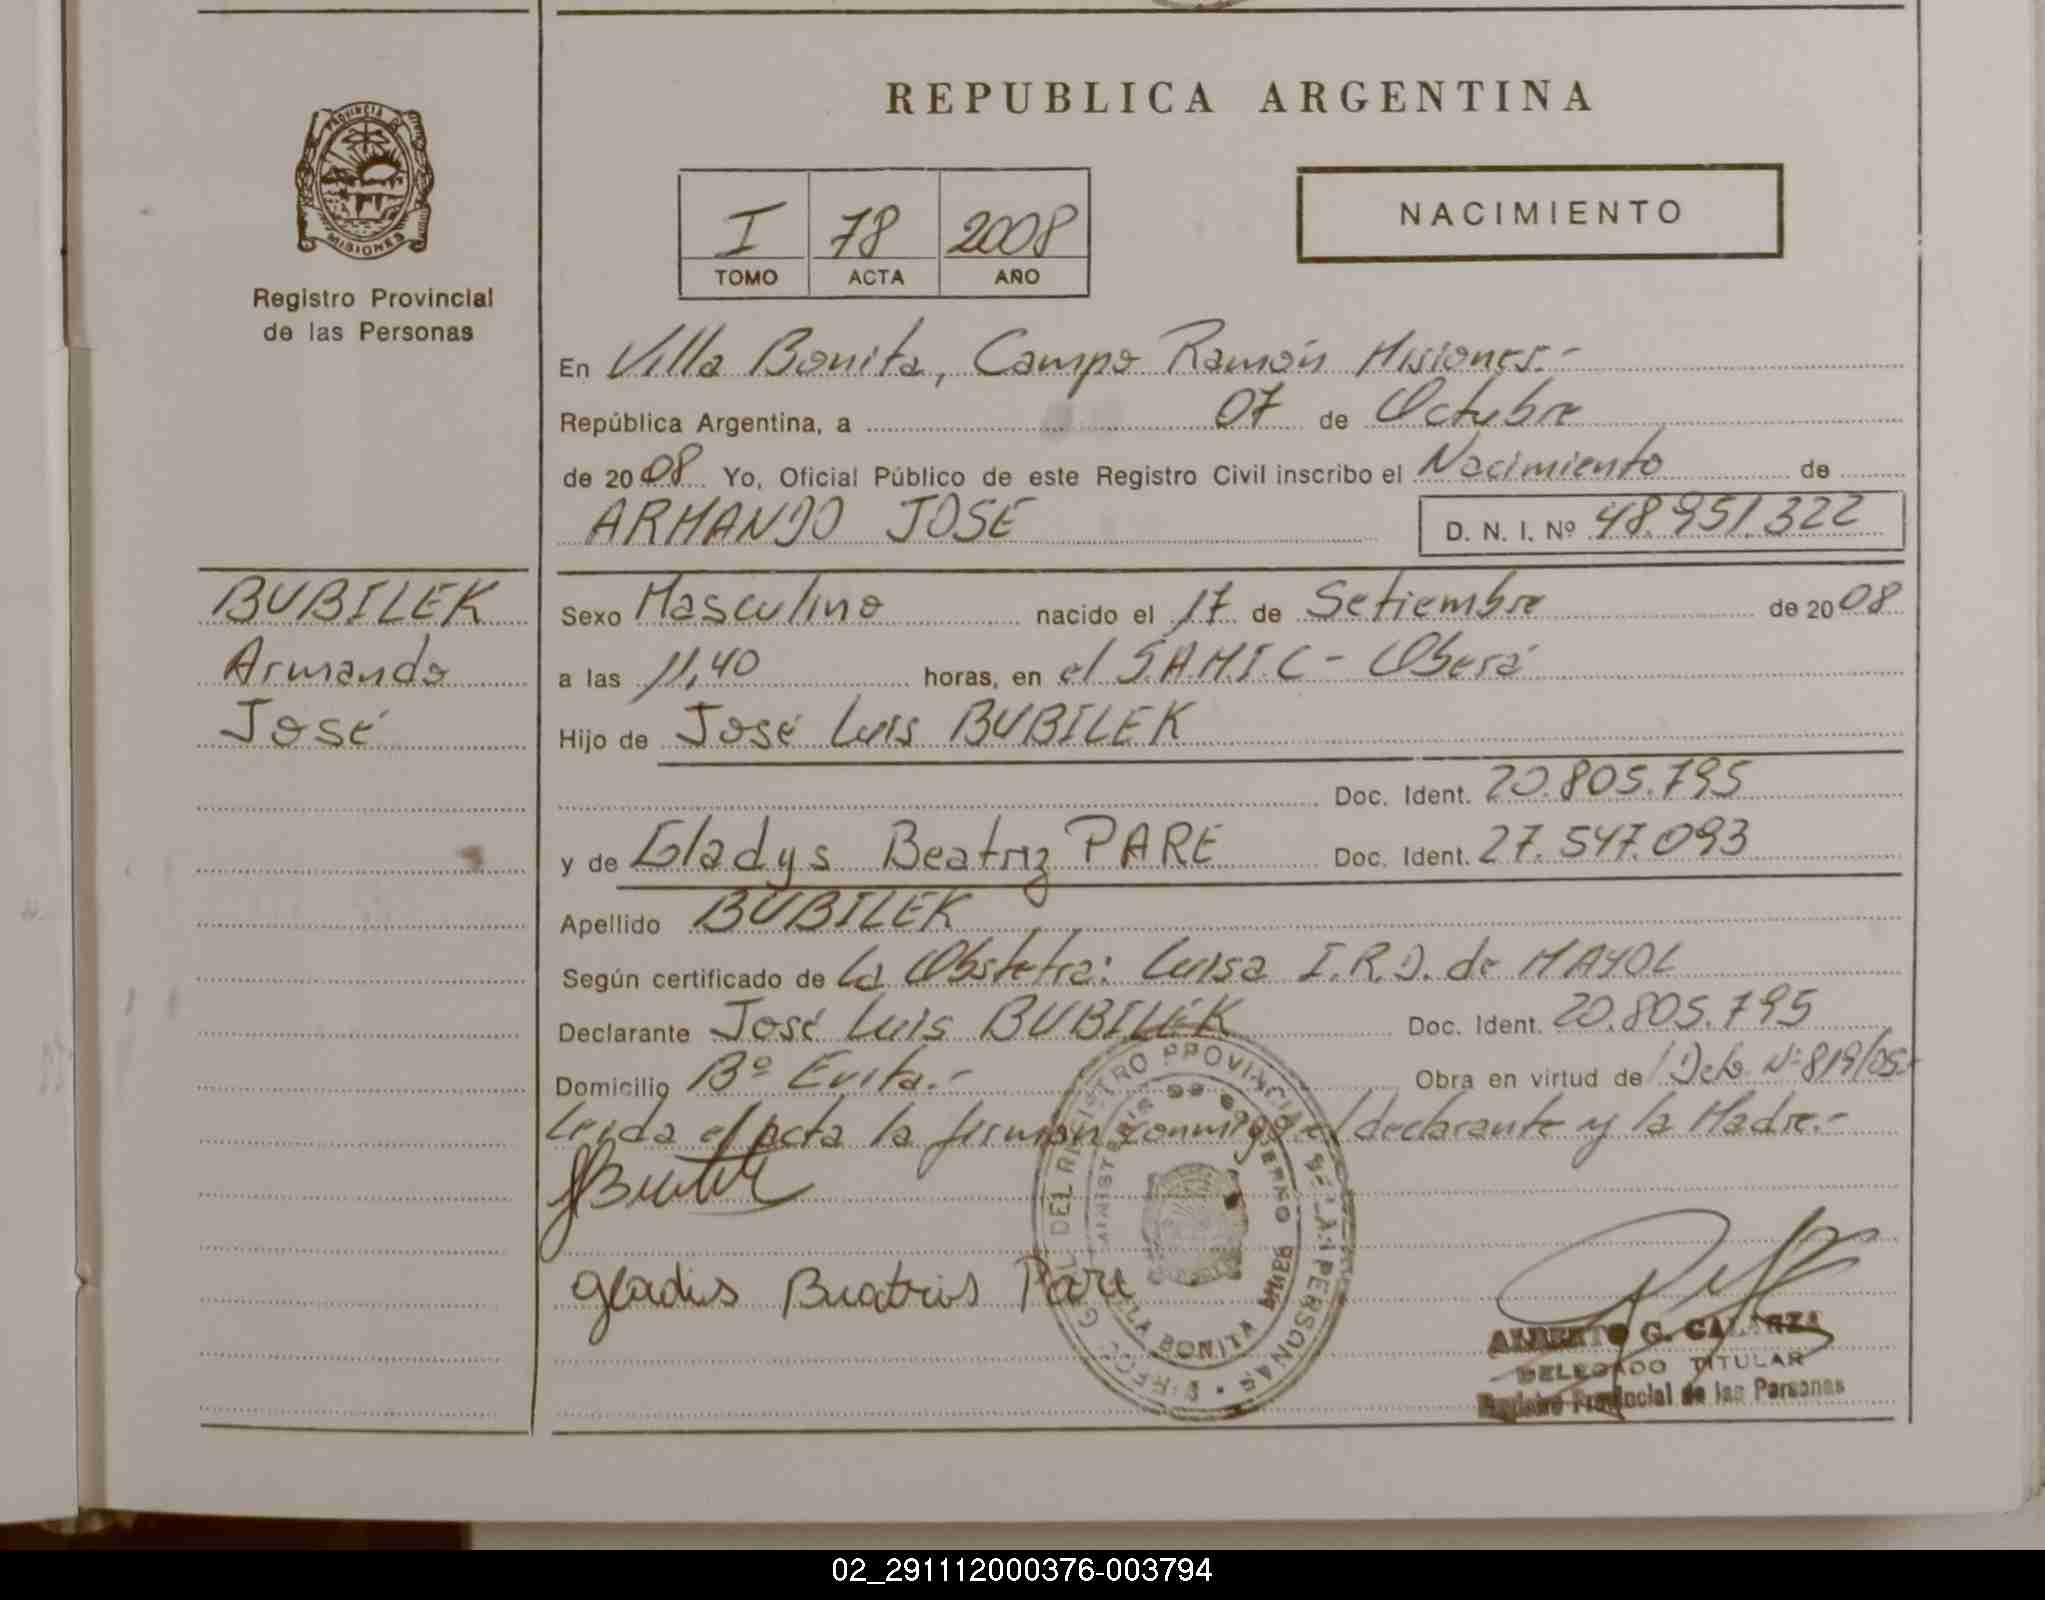 REPUBLICA ARGENTINA
PROVINCIA DE
MISIONES
Registro Provincial
de las Personas
I 78 2008
TOMO ACTA AÑO
NACIMIENTO
En Villa Bonita, Campo Ramón Misiones.-
República Argentina, a 07 de Octubre
de 2008 Yo, Oficial Público de este Registro Civil inscribo el Nacimiento de
ARMANDO JOSE D. N. I. Nº 48.951.322
BUBILEK
Armando
José
Sexo Masculino nacido el 17 de Setiembre de 2008
a las 11,40 horas, en el S.A.M.I.C - Oberá
Hijo de José Luis BUBILEK
Doc. Ident. 20.805.795
y de Gladys Beatriz PARE Doc. Ident. 27.547.093
Apellido BUBILEK
Según certificado de La Obstetra: Luisa I.R.D. de MAYOL
Declarante José Luis BUBILEK Doc. Ident. 20.805.795
Domicilio Bº Evita.- Obra en virtud de Dcto Nº 819/05.-
Leida el acta la firman conmigo el declarante y la Madre.-
Gladis Beatris Pare
DEL REGISTRO PROVINCIAL DE LAS PERSONAS
MINISTERIO DE GOBIERNO
BONITA
ALBERTO G. GALARZA
DELEGADO TITULAR
Registro Provincial de las Personas
02_291112000376-003794